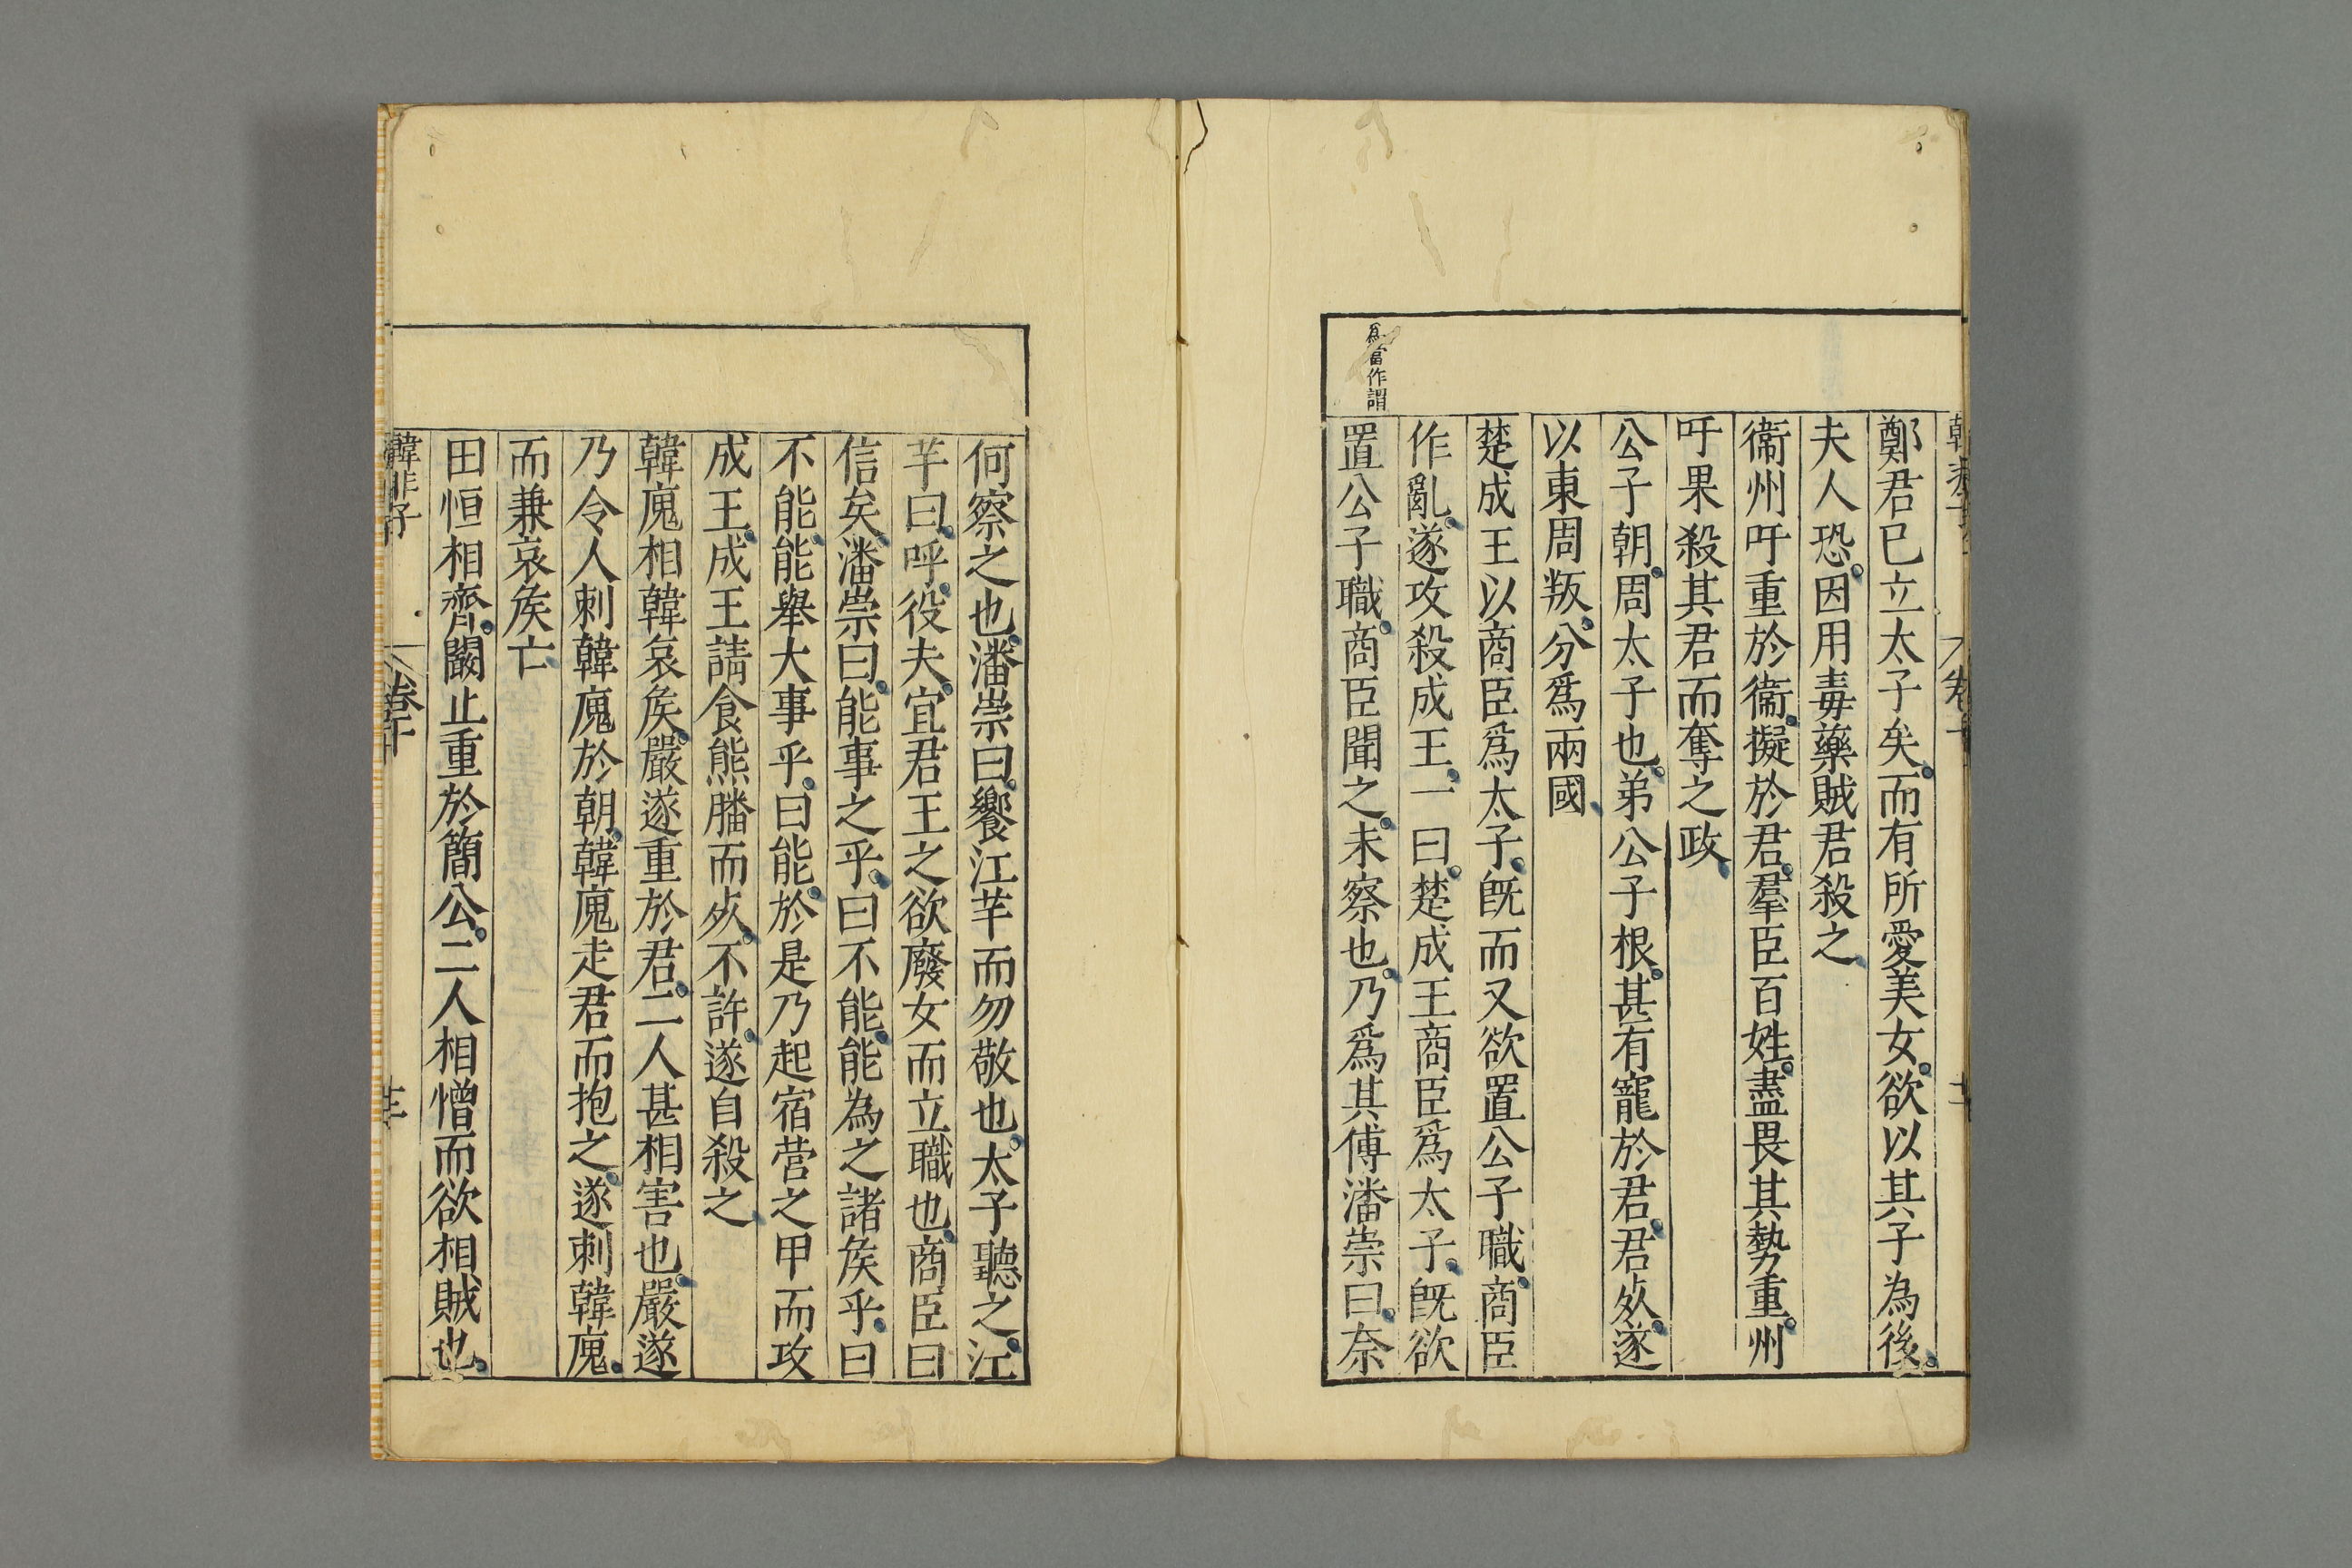 鄭君已立太子矣而有所愛美女欲以其子為後
夫人恐因用毒藥賊君殺之
衞州吁重於衞擬於君羣臣百姓盡畏其勢重州
吁果殺其君而奪之政
公子朝周太子也弟公子根甚有寵於君君𣦸遂
以東周叛分爲兩國
楚成王以商臣爲太子旣而又欲置公子職商臣
作亂遂攻殺成王一曰楚成王商臣爲太子旣欲
置公子職商臣聞之未察也乃爲其傅潘崇曰奈
爲當作謂
何察之也潘崇曰饗江芉而勿敬也太子聽之江
芉曰呼役夫宜君王之欲廢女而立職也商臣曰
信矣潘崇曰能事之乎曰不能能為之諸矦乎曰
不能能舉大事乎曰能於是乃起宿營之甲而攻
成王成王請食熊膰而𣦸不許遂自殺之
韓廆相韓哀矦嚴遂重於君二人甚相害也嚴遂
乃令人刺韓廆於朝韓廆走君而抱之遂刺韓廆
而兼哀矦亡
田恒相齊闞止重於簡公二人相憎而欲相賊也
韓非子 卷十